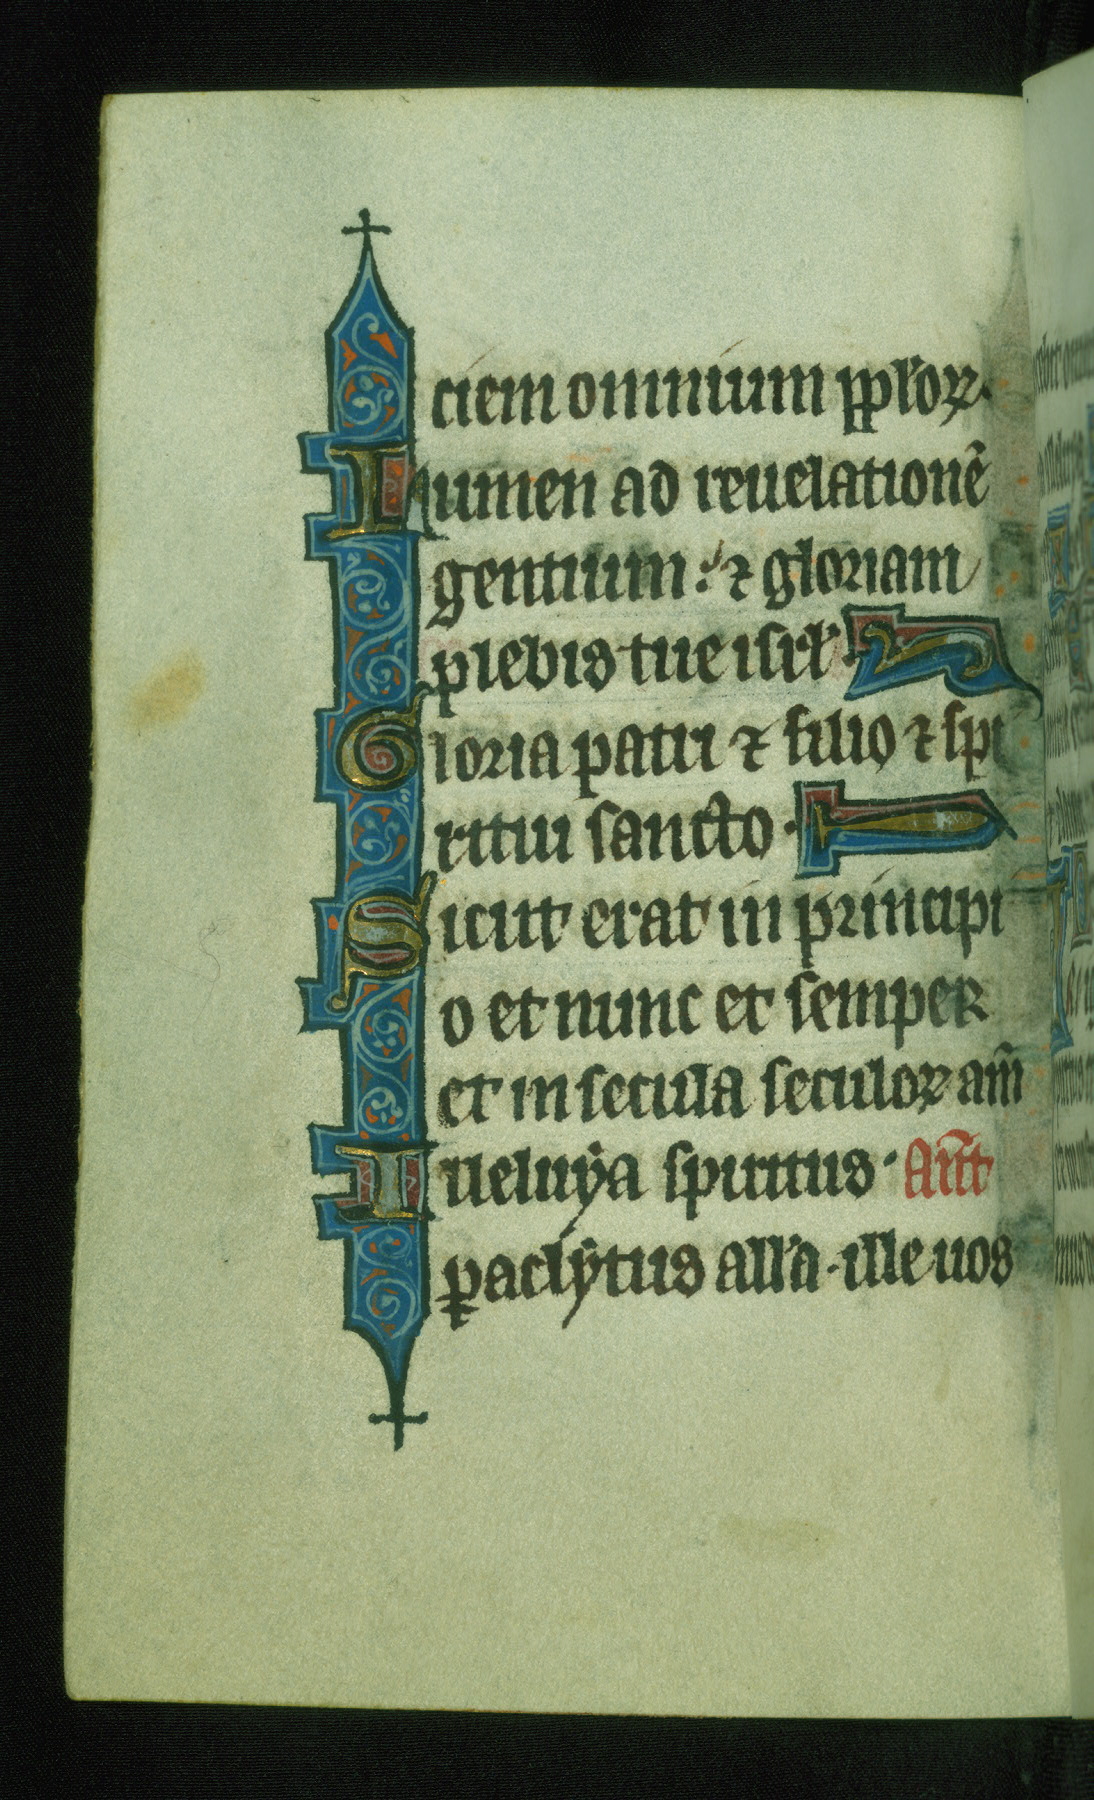 ciem omnium pplōꝝ.
Lumen ad reuelationē
gentium: ⁊ gloriam
plebis tue isrl'.
Gloria patri ⁊ filio ⁊ spi
ritui sancto.
Sicut erat in principi
o et nunc et semper
et in secula seculoꝝ am̄
lleluẏa spiritus. An̄t
ꝑaclẏtus all'a. ille uos